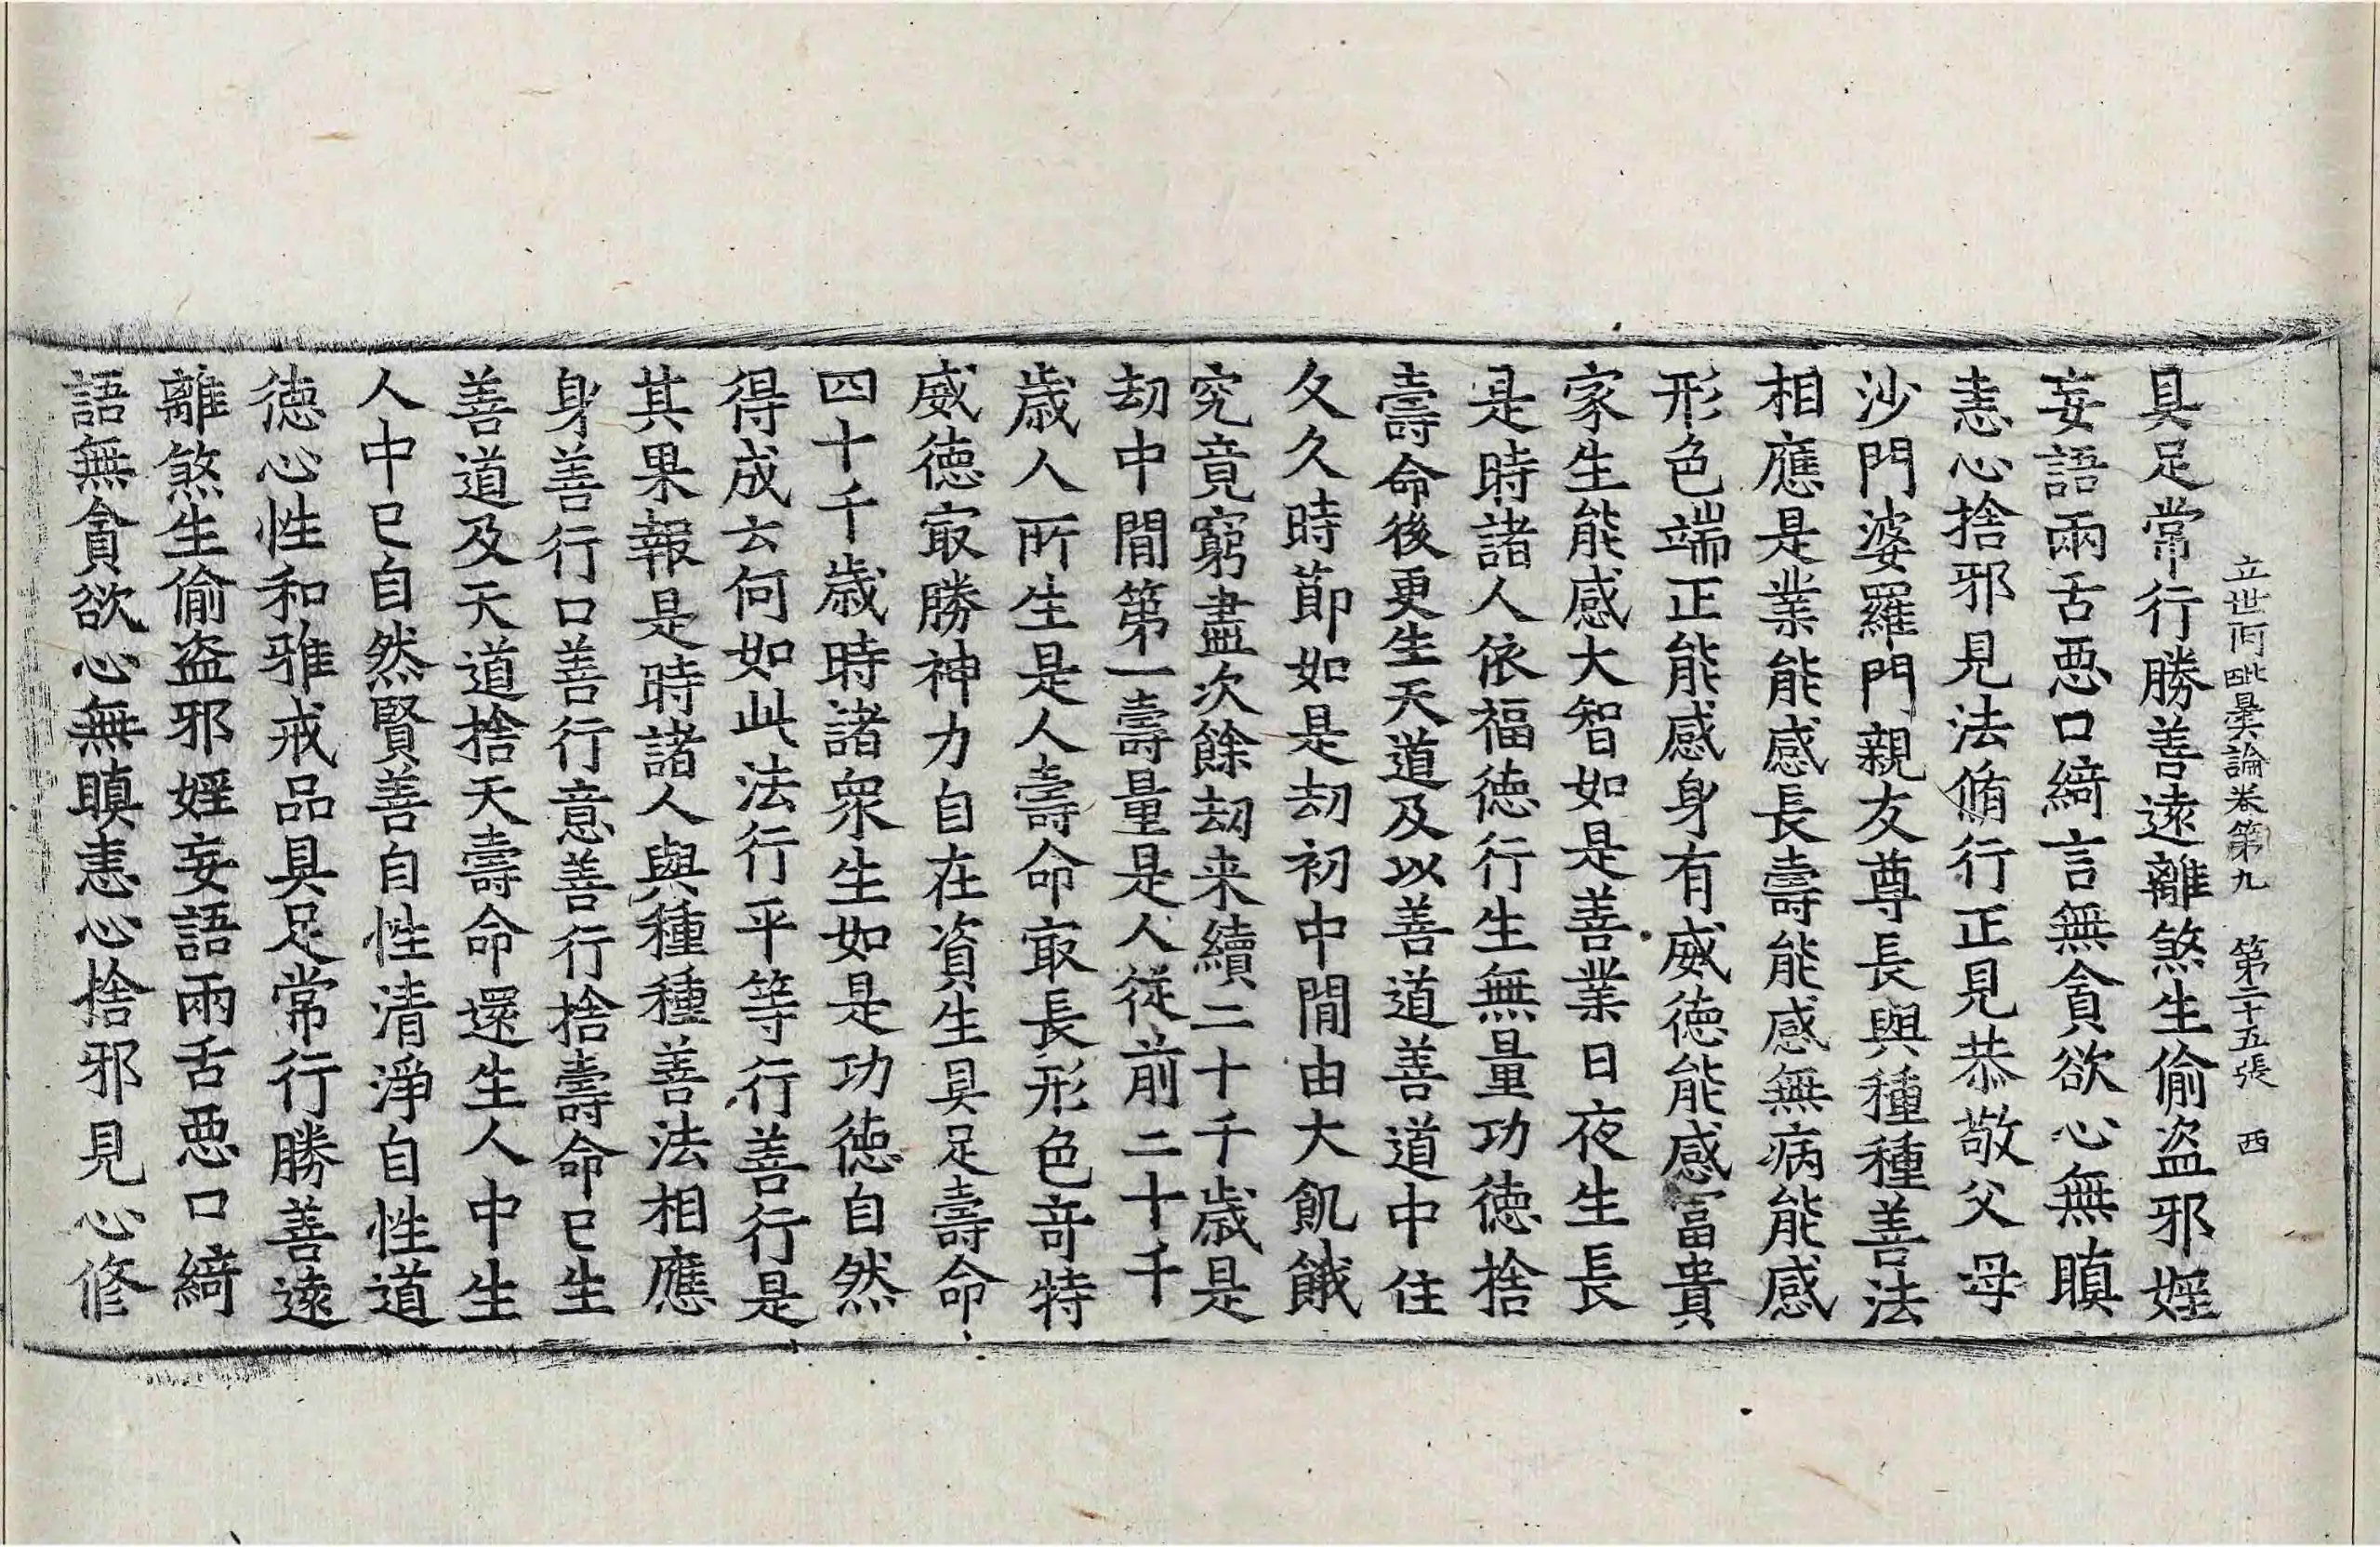 立世阿毗曇論卷第九 第二十五張 西
具足常行勝善遠離煞生偷盜邪婬
妄語兩舌惡口綺言無貪欲心無瞋
恚心捨邪見法脩行正見恭敬父母
沙門婆羅門親友尊長與種種善法
相應是業能感長壽能感無病能感
形色端正能感身有威德能感富貴
家生能感大智如是善業日夜生長
是時諸人依福德行生無量功德捨
壽命後更生天道及以善道善道中住
久久時節如是劫初中間由大飢餓
究竟窮盡次餘劫来續二十千歲是
劫中間第一壽量是人從前二十千
歲人所生是人壽命㝡長形色竒特
威德㝡勝神力自在資生具足壽命
四十千歲時諸衆生如是功德自然
得成云何如此法行平等行善行是
其果報是時諸人與種種善法相應
身善行口善行意善行捨壽命已生
善道及天道捨天壽命還生人中生
人中已自然賢善自性清淨自性道
德心性和雅戒品具足常行勝善遠
離煞生偷盜邪婬妄語兩舌惡口綺
語無貪欲心無瞋恚心捨邪見心修